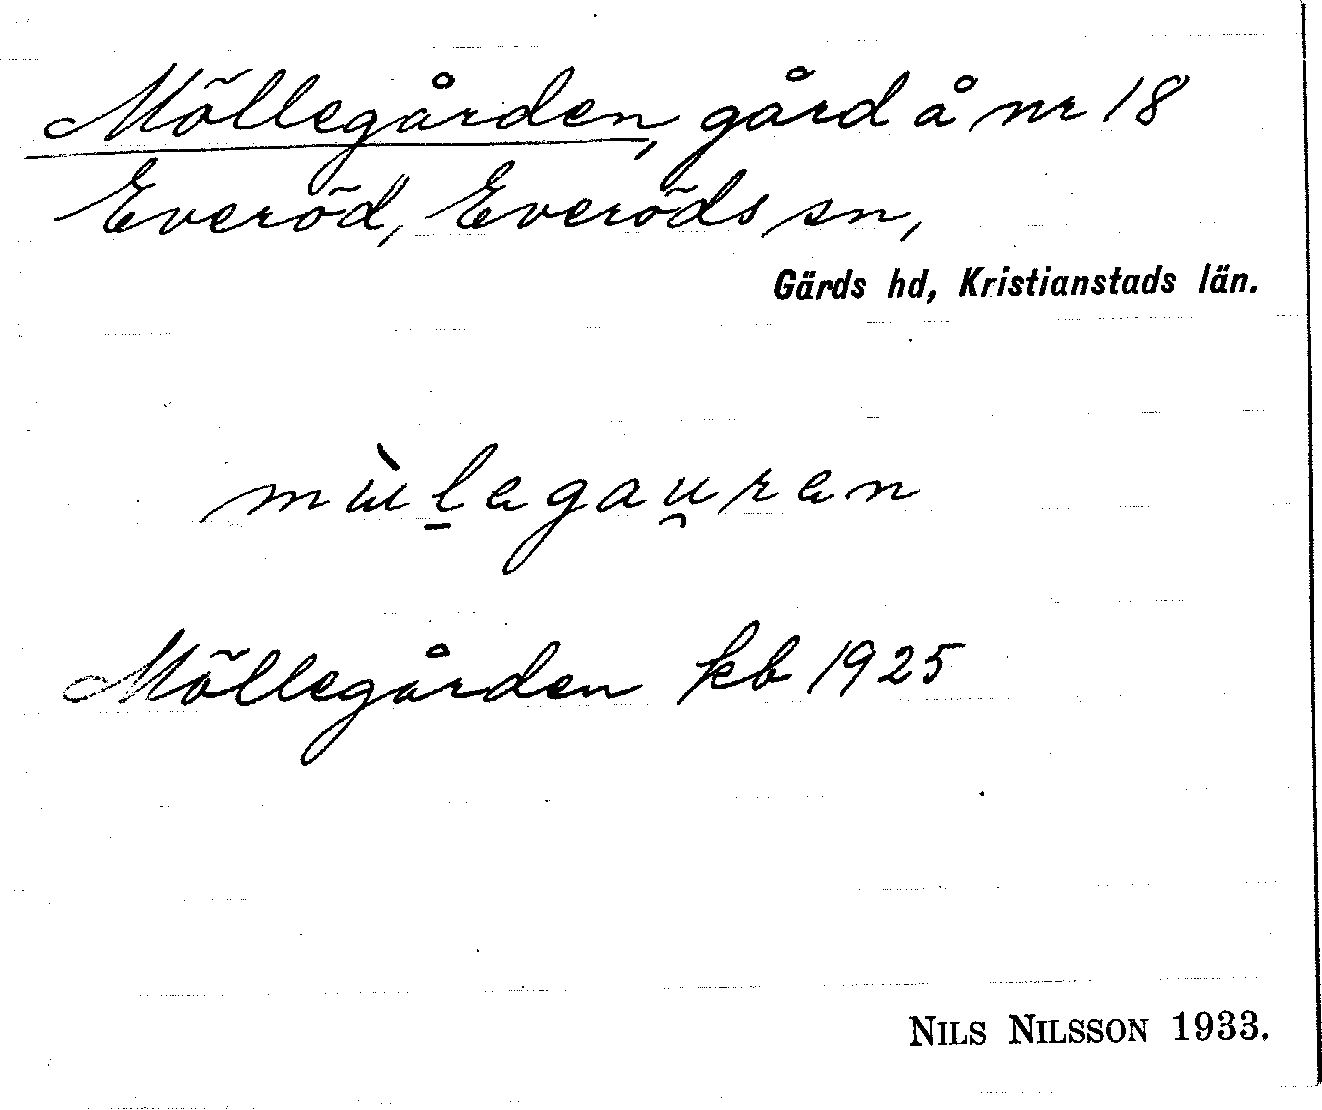 Möllegården, gård å nr 18
Everöd, Everöds sn,
Gärds hd, Kristianstads län.
mɯ̀l̠agau̯ran
Möllegården kb 1925
NILS NILSSON 1933.